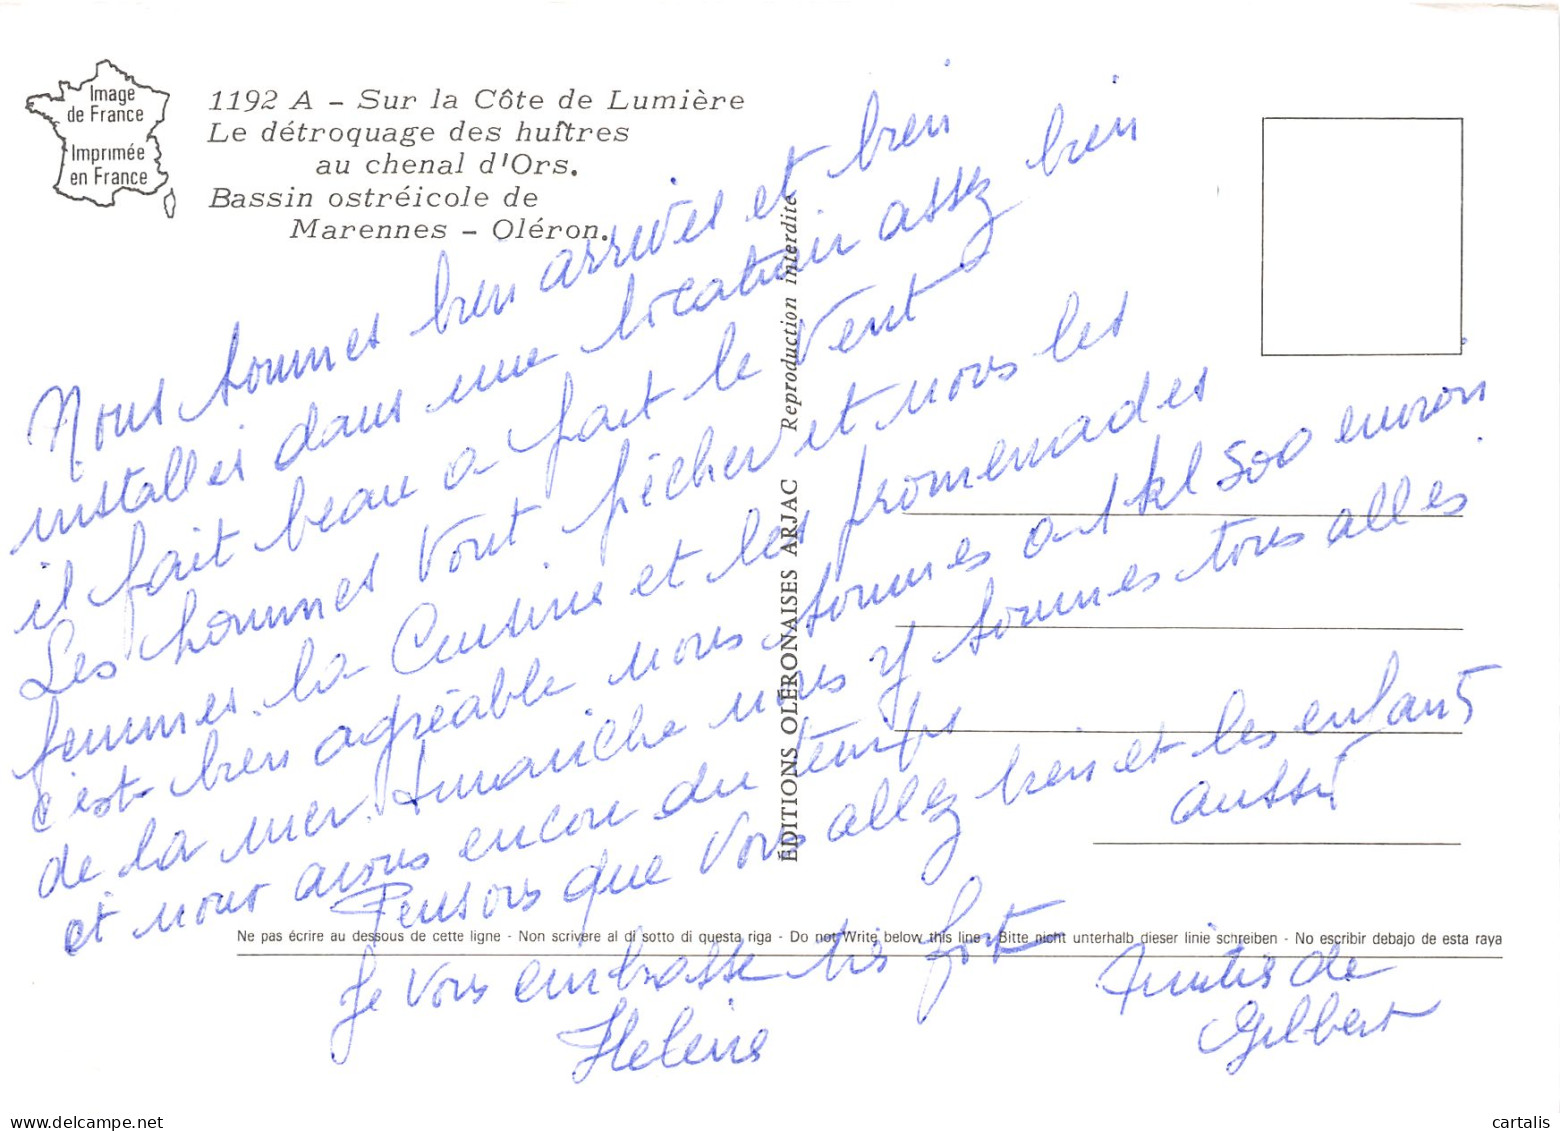 Image
de France
Imprimée
en France
1192 A - Sur la Côte de Lumière
Le détroquage des huîtres
au chenal d'Ors.
Bassin ostréicole de
Marennes - Oléron.
Nous sommes bien arrivés et bien
installés dans une location assez bien
il fait beau a fait le vent
Les hommes vont pécher et nous les
femmes la Cuisine et les promenades
c'est bien agréable nous sommes a kl 500 environ
de la mer dimanche nous y sommes tous allés
et nous avons encore du temps
Pensons que vous allez bien et les enfants
aussi
Je vous embrasse très fort
Helène
Amitiés de
Gilbert
ÉDITIONS OLÉRONAISES ARJAC Reproduction interdite
Ne pas écrire au dessous de cette ligne - Non scrivere al di sotto di questa riga - Do not Write below this line - Bitte nicht unterhalb dieser linie schreiben - No escribir debajo de esta raya
cartalis